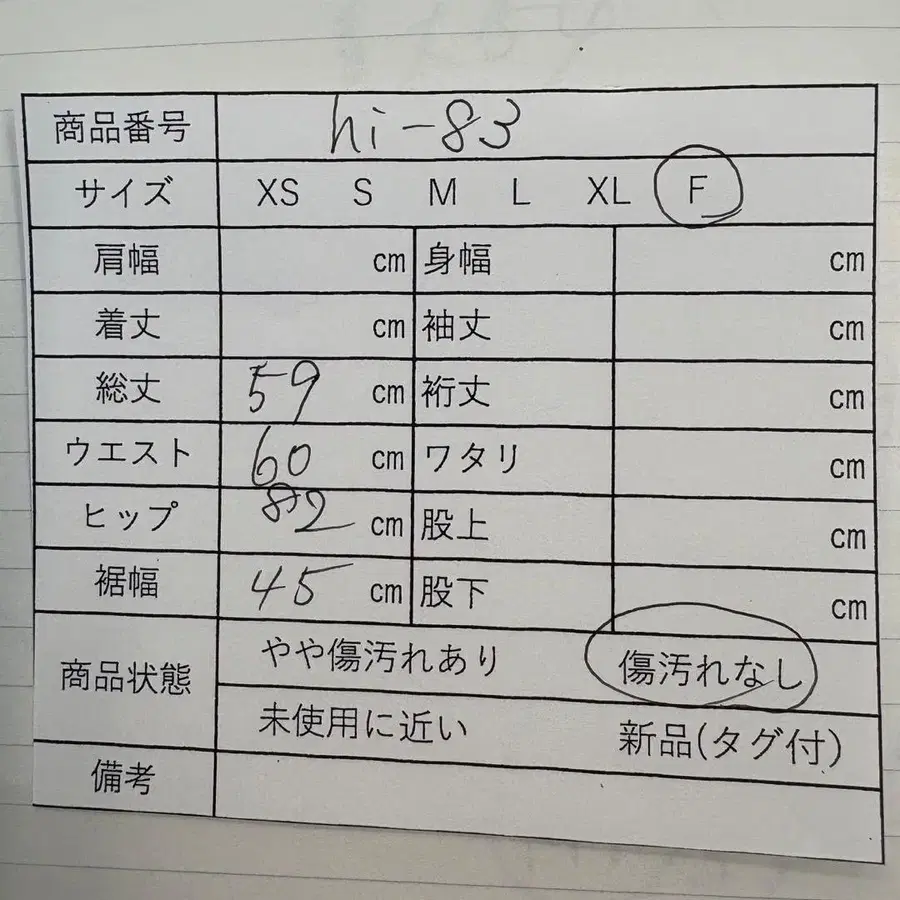 商品番号 hi-83
サイズ XS S M L XL F
肩幅 cm 身幅 cm
着丈 cm 袖丈 cm
総丈 59 cm 裄丈 cm
ウエスト 60 cm ワタリ cm
ヒップ 82 cm 股上 cm
裾幅 45 cm 股下 cm
商品状態 やや傷汚れあり 傷汚れなし
未使用に近い 新品(タグ付)
備考